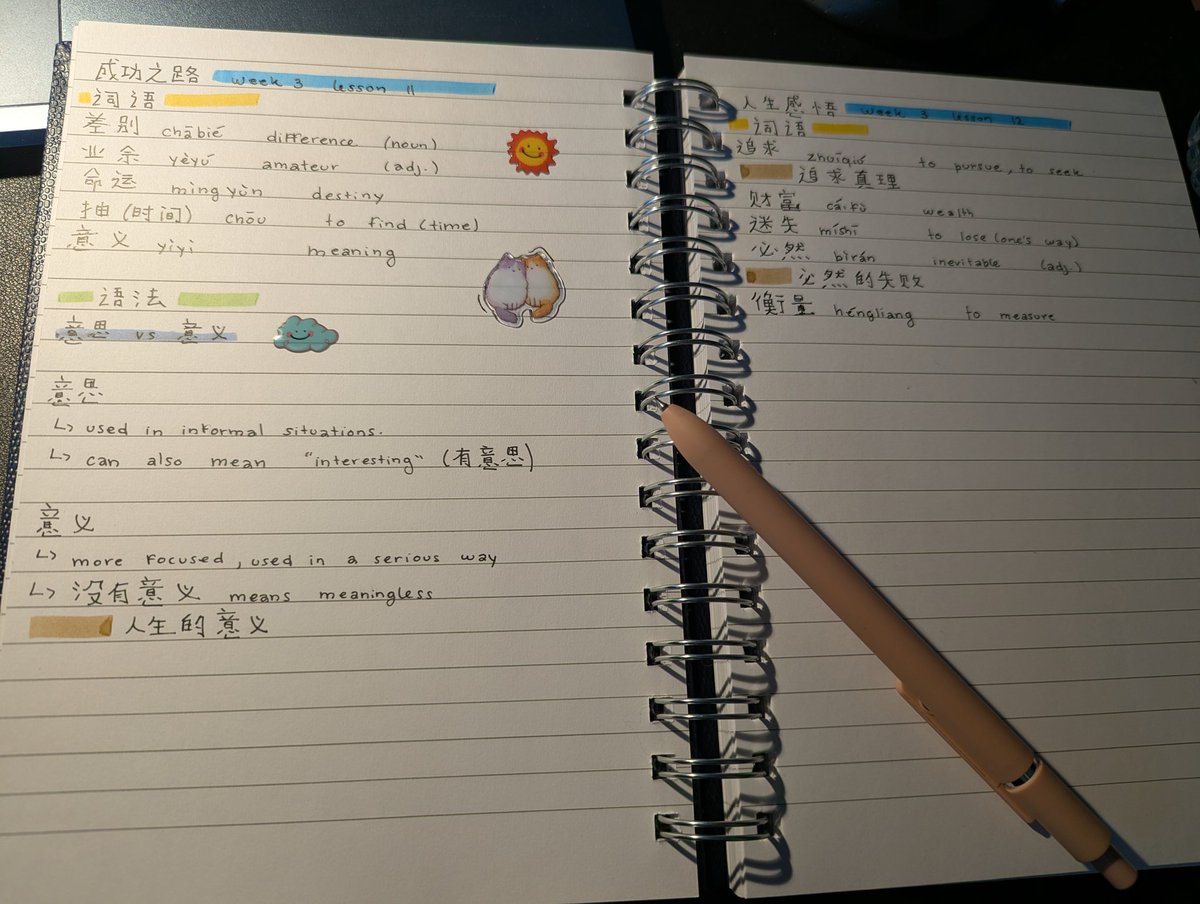 成功之路 week 3 lesson 11
词语
差别 chābié difference (noun)
业余 yèyú amateur (adj.)
命运 mìngyùn destiny
抽(时间) chōu to find (time)
意义 yìyì meaning
语法
意思 vs 意义
意思
↳ used in informal situations.
↳ can also mean "interesting" (有意思)
意义
↳ more focused, used in a serious way
↳ 没有意义 means meaningless
人生的意义
人生感悟 week 3 lesson 12
词语
追求 zhuīqiú to pursue, to seek.
追求真理
财富 cáifù wealth
迷失 míshī to lose (one's way)
必然 bìrán inevitable (adj.)
必然的失败
衡量 héngliang to measure